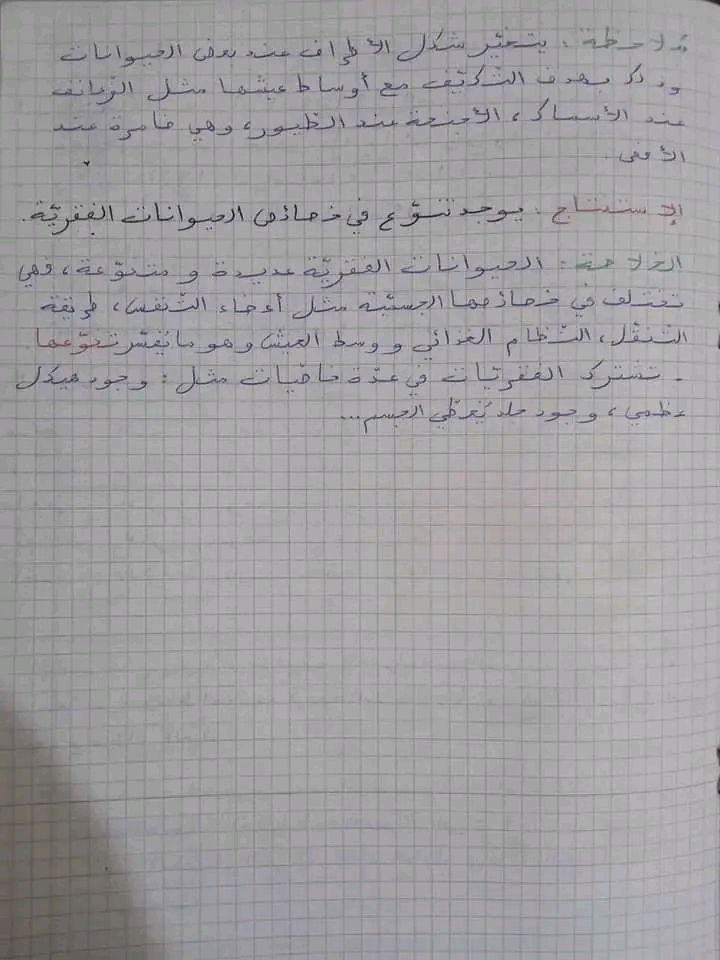 ملاحظة : يتغيّر شكل الأطراف عند بعض الحيوانات
وذلك بهدف التّكيّف مع أوساط عيشها مثل الزعانف
عند الأسماك، الأجنحة عند الطيور، وهي ضامرة عند
الأفعى .
الإستنتاج : يوجد تنوّع في خصائص الحيوانات الفقريّة.
الخلاصة : الحيوانات الفقريّة عديدة و متنوّعة، فهي
تختلف في خصائصها الجسميّة مثل أعضاء التّنفس، طريقة
التّنقّل، النّظام الغذائي و وسط العيش و هو ما يُفسّر تنوّعها
- تشترك الفقريّات في عدّة خاصيّات مثل : وجود هيكل
عظمي، وجود جلد يُغطّي الجسم...